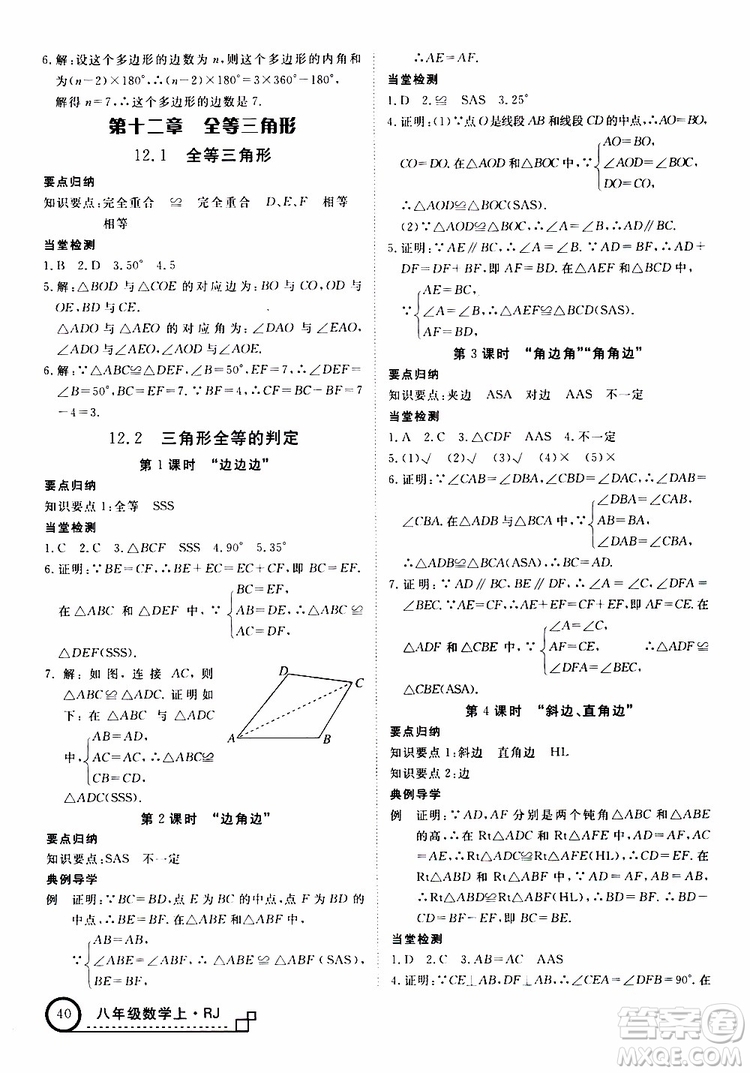 6. 解:设这个多边形的边数为 n,则这个多边形的内角和
为(n−2)×180°,∴(n−2)×180°=3×360°−180°.
解得 n=7,∴这个多边形的边数是 7.
第十二章 全等三角形
12.1 全等三角形
要点归纳
知识要点:完全重合 ≌ 完全重合 D、E、F 相等
相等
当堂检测
1. B 2. D 3. 50° 4. 5
5. 解:△BOD 与△COE 的对应边为:BO 与 CO,OD 与
OE,BD 与 CE.
△ADO 与△AEO 的对应角为:∠DAO 与∠EAO,
∠ADO 与∠AEO,∠AOD 与∠AOE.
6. 解:∵△ABC≌△DEF,∠B=50°,EF=7,∴∠E=
∠B=50°,BC=EF=7.∵CF=4,∴BF=BC−CF=7
−4=3.
12.2 三角形全等的判定
第 1 课时 “边边边”
要点归纳
知识要点 1:全等 SSS
当堂检测
1. C 2. C 3. △BCF SSS 4. 90° 5. 35°
6. 证明:∵BE=CF,∴BE+EC=EC+CF,∴BC=EF.
BC=EF,
在△ABC 和△DEF 中,∵ AB=DE, ∴△ABC≌
AC=DF,
△DEF(SSS).
7. 解:如图,连接 AC,则
△ABC≌△ADC.证明如
下:在△ABC 与△ADC
AB=AD,
中,∵ AC=AC,∴△ABC≌
CB=CD,
△ADC(SSS).
D
C
A
B
第 2 课时 “边角边”
要点归纳
知识要点:SAS 不一定
典例导学
例 证明:∵AB=BC=BD,点 E 为 BC 的中点,点 F 为 BD 的
中点,∴BE=BF.
AB=AB,
∵ ∠ABE=∠ABF, ∴△ABE≌△ABF(SAS),
BE=BF,
40 八年级数学上·RJ
∴AE=AF.
当堂检测
1. D 2. ≌ SAS 3. 25°
4. 证明:(1)∵点 O 是线段 AB 和线段 CD 的中点,∴AO=
AO=BO,
CO=BO,DO=CO.在△AOD 和△BOC 中,∵ ∠AOD=∠BOC,
DO=CO,
∴△AOD≌△BOC(SAS).
(2)∵△AOD≌△BOC,∴∠A=∠B,∴AD∥BC.
5. 证明:∵AE∥BC,∴∠A=∠B.∵AD=BF,∴AD+
DF=DF+BF,∴AF=BD.在△AEF 和△BCD 中,
AE=BC,
∵ ∠A=∠B, ∴△AEF≌△BCD(SAS).
AF=BD,
第 3 课时 “角边角”“角角边”
要点归纳
知识要点:夹边 ASA 对边 AAS 不一定
当堂检测
1. A 2. C 3. △CDF AAS 4. 不一定
5. (1)√ (2)√ (3)√ (4)× (5)×
6. 证明:∵∠CAB=∠DBA,∠CBD=∠DAC,∴∠DAB=
∠DBA=∠CAB,
∠CBA.在△ADB 与△BCA 中,∵ AB=BA,
∠DAB=∠CBA,
∴△ADB≌△BCA(ASA).
7. 证明:∵AD∥BC,BE∥DF,∴∠A=∠C,∠DFA=
∠BEC.∵AE=CF,∴AE+EF=CF+EF,即 AF=CE.在
∠A=∠C,
△ADF 和△CBE 中,∵ AF=CE, ∴△ADF≌
∠DFA=∠BEC,
△CBE(ASA).
第 4 课时 “斜边、直角边”
要点归纳
知识要点 1:斜边 直角边 HL
知识要点 2:边
典例导学
例 证明:∵AD,AF 分别是两个钝角△ABC 和△ABE
的高,∴在 Rt△ADC 和 Rt△AFE 中,∵AD=AF,AC
=AE,∴Rt△ADC≌Rt△AFE(HL),∴CD=EF.在
Rt△ABD 和 Rt△ABF 中,∵AD=AF,AB=AB,
∴Rt△ABD≌Rt△ABF(HL),∴BD=BF,∴BD−
CD=BF−EF,即 BC=BE.
当堂检测
1. D 2. D 3. AB=AC AAS
4. 证明:∵CE⊥AB,DF⊥AB,∴∠CEA=∠DFB=90°.在
答案圈
MXQE.COM